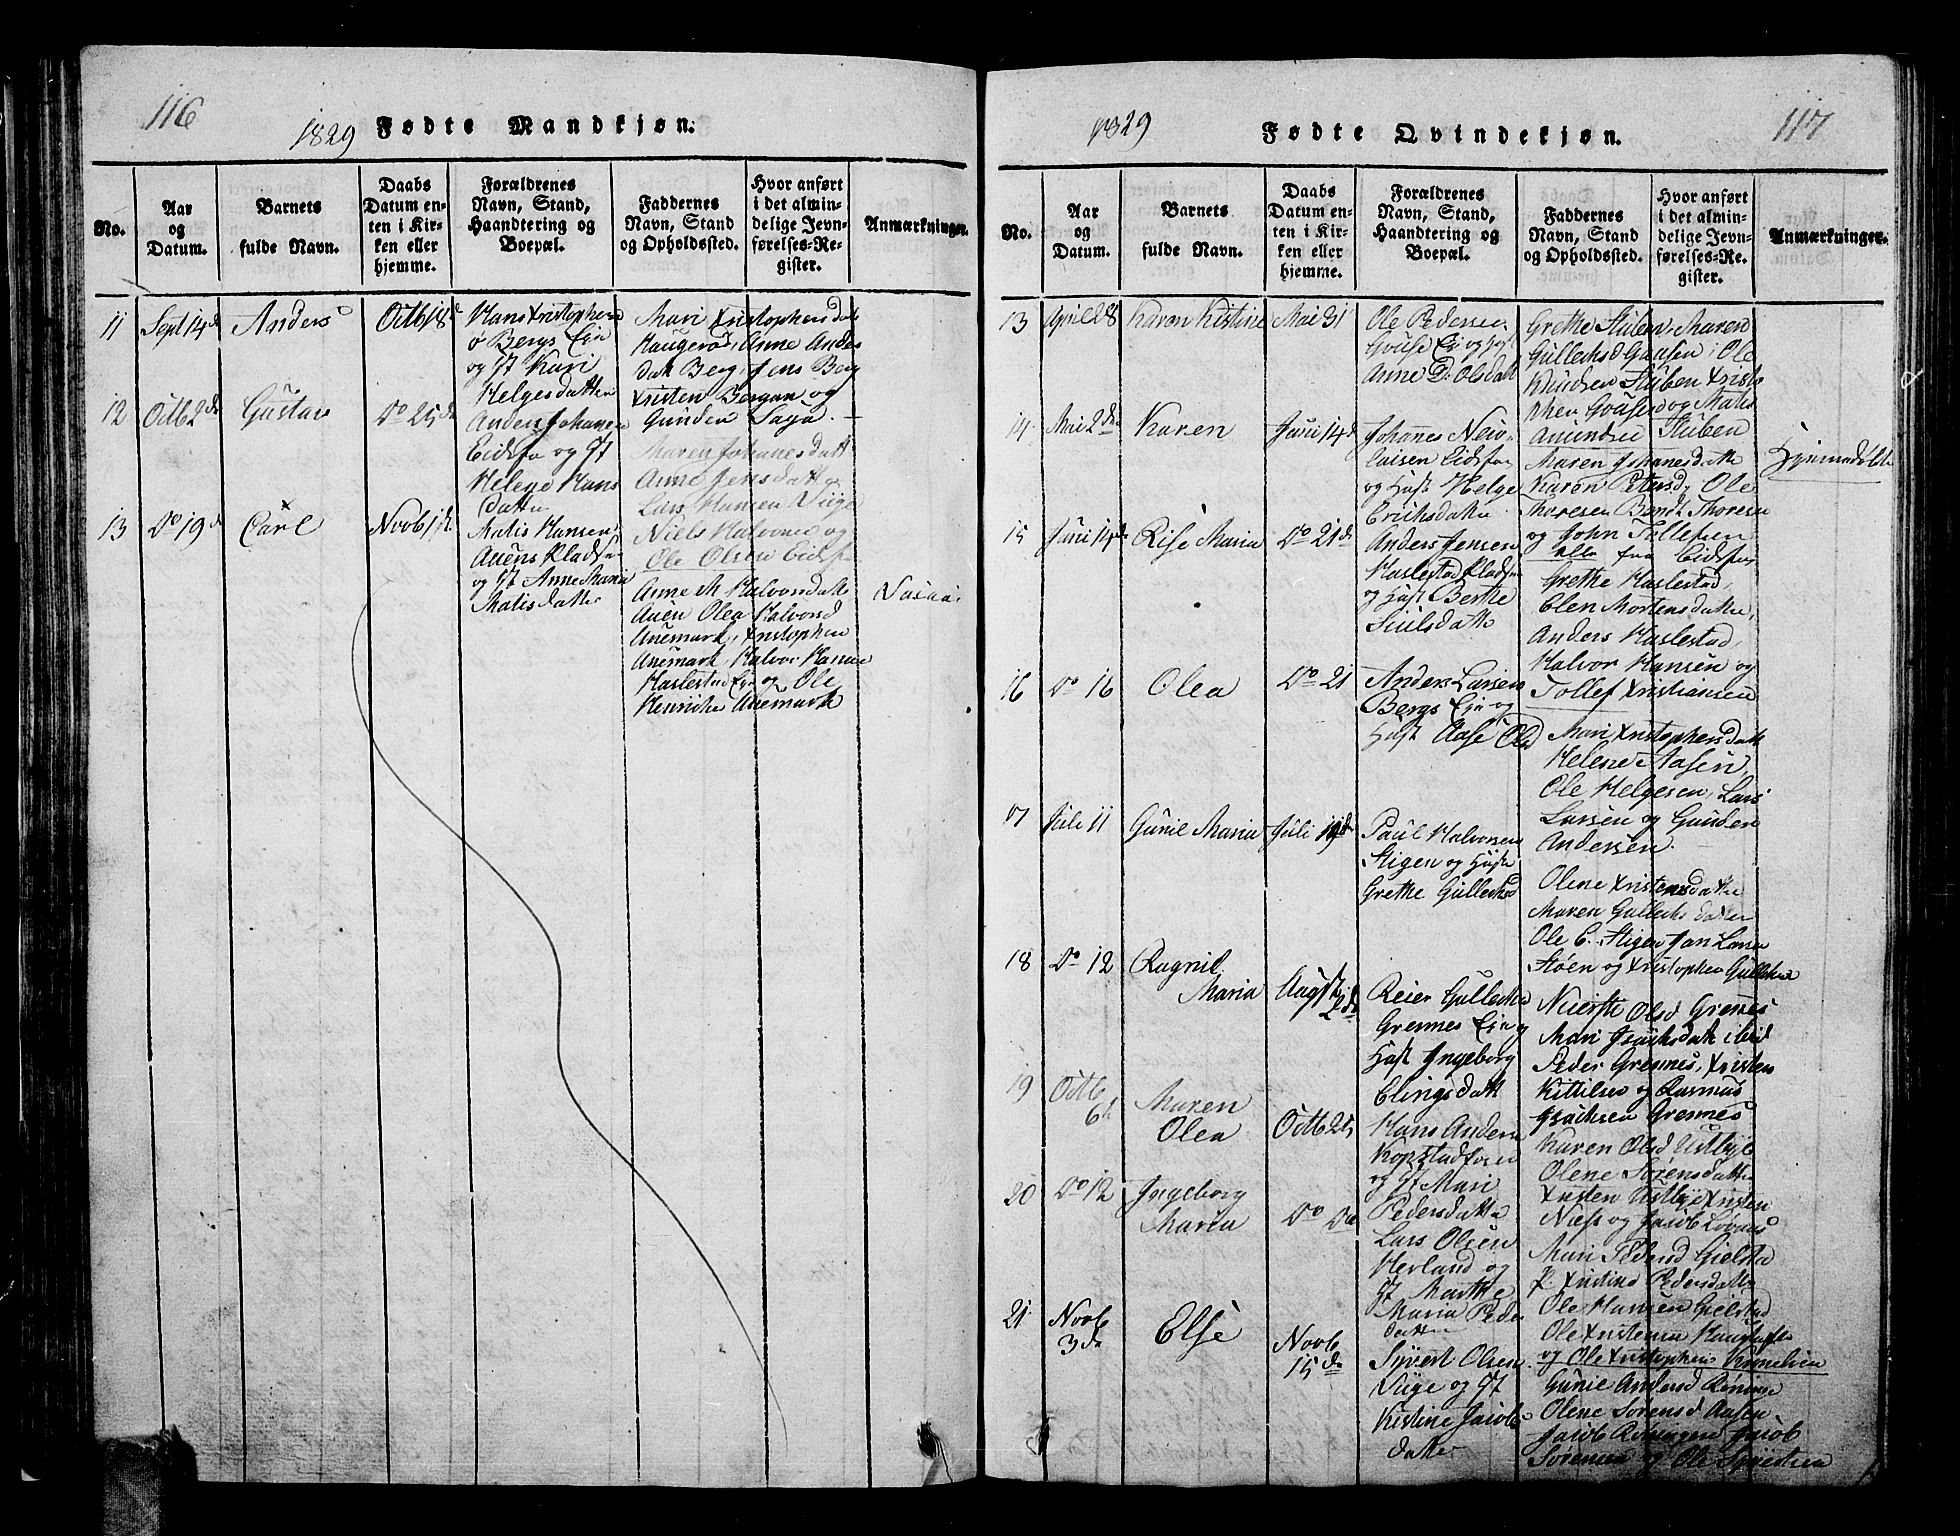 116
1829 Fødte Mandkjøn.
No.
Aar
og
Datum.
Barnets
fulde Navn.
Daabs
Datum en-
ten i Kir-
ken eller
hjemme.
Forældrenes
Navn, Stand,
Haandtering og
Boepæl.
Faddernes
Navn, Stand
og Opholdssted.
Hvor anført
i det almin-
delige Jevn-
førelses-Re-
gister.
Anmærkninger.
11
Sept 14d
Anders
Octb 18d
Hans Xristophersen
Bergs Eje
og H Kari
Helgesdatter
Mari Xristophersdatt
Haugerød, Anne Anders
datt Berg, Jens Berg
Xristen Bergan og
Gunder Saga.
12
Octb 2d
Gustav
Do 25de
Anders Johansen
Eidsfos og H
Helene Hans
datter
Maren Johanesdatt
Anne Jensdatter
Lars Hansen Viige
Niels Halvorsen og
Ole Olsen Eidsfos
13
Do 19d
Carl
Novb 1ste
Matis Hansen
Auens Pladsen
og H Anne Maria
Matisdatter
Anne M Halvorsdatt
Auen Olea Halvorsd
Anemark, Xristopher
Anemark, Halvor Hansen
Haslestad Eje og Ole
Henriche Anemark
117
1829
Fødte Qvindekjøn.
No.
Aar
og
Datum.
Barnets
fulde Navn.
Daabs
Datum en-
ten i Kir-
ken eller
hjemme.
Forældrenes
Navn, Stand,
Haandtering og
Boepæl.
Faddernes
Navn, Stand
og Opholdssted.
Hvor anført
i det almin-
delige Jevn-
førelses-Re-
gister.
Anmærkninger.
13
April 28
Karen Kistine
Mai 31
Ole Pedersen
Anne D. Olsdatt
Grethe Stuben, Maren
Gullechsd Gausen, Ole
Knudsen Stuben Xristo
pher og Matis
Amundsen Stuben
14
Mai 2de
Karen
Juni 14d
Johanes Neio
laisen Eidsfos
og Hust Helge
Erichsdatter
Maren Johanesdatte
Karen Petersd, Ole
Thoresen Bendt Thoresen
og John Tollefsen
alle fra Eidsfos
Hjemmedøbt
15
Juni 14de
Rise Maria
Do 21de
Anders Jensen
Haslestad Pladsen
og Hust Berthe
datte
Grethe Haslestad,
Elen Mortensdatter,
Anders Haslestad,
Halvor Hansen og
Tollef Xristiansen
16
Do 16
Olea
Do 21
Anders Larsen
Bergs Eje og
Hust Aase Olsd
Mari Xristophersdatt
Helene Aasen,
Ole Helgesen, Lars
Larsen og Gunder
Andersen.
17
Juli 11
Gunil Maria
Juli 19de
Paul Halvorsen
Stigen og Hust
Grethe Gullechsd
Olene Xristensdatter
Maren Gullechsdatter
Ole E. Stigen Jan Larsen
Støen og Xristopher Gullichsen
18
Do 12
Ragnil
Maria
Augst
2de
Reier Gullechsen
Grennes Eje og
Hust Ingeborg
Elingsdatt
Olsd Grennes
Mari Isachsdatt ibid
Peder Grennes, Xristen
Kittilsen og Rasmus
Isachsen Grennes
19
Octb
6te
Maren
Olea
Octb 25
Hans Andersen
Kopstadfosen
og H Mari
Pedersdatter
Karen Olsd Ustbye
Olene Sørensdatter
Xristen Ustbye Xristen
Næss og Jacob
20
Do 12
Ingeborg
Maria
Do Do
Lars Olsen
Herland og
H Marthe
Maria Peder
datter
Mari Pedersd Gielsta
P. Xristine Pedersdatter
Ole Hansen Gielstad
Ole Xristensen
og Ole Xristophersen
21
Novb
3de
Else
Novb
15de
Syvert Olsen
Viige og H
Kistine Jacobs
datter
Gunil Andersd
Olene Sørensd Aasen
Jacob Jacob
Sørensen og Ole Syvertsen